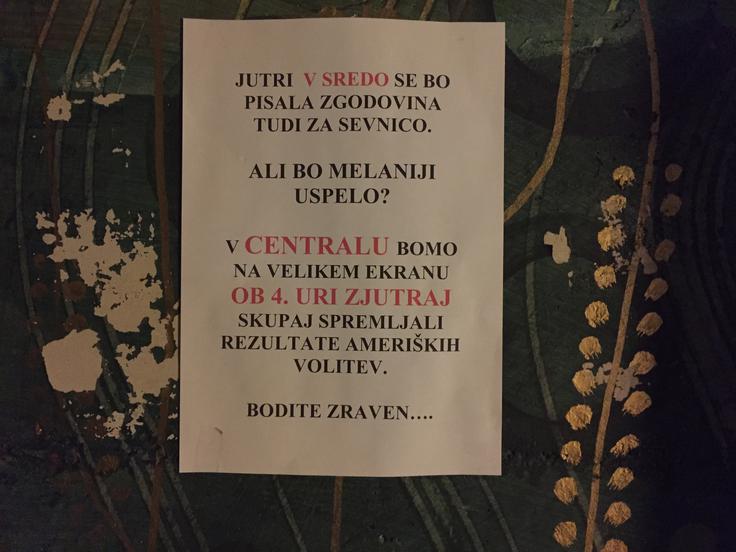 JUTRI V SREDO SE BO
PISALA ZGODOVINA
TUDI ZA SEVNICO.
ALI BO MELANIJI
USPELO?
V CENTRALU BOMO
NA VELIKEM EKRANU
OB 4. URI ZJUTRAJ
SKUPAJ SPREMLJALI
REZULTATE AMERIŠKIH
VOLITEV.
BODITE ZRAVEN....